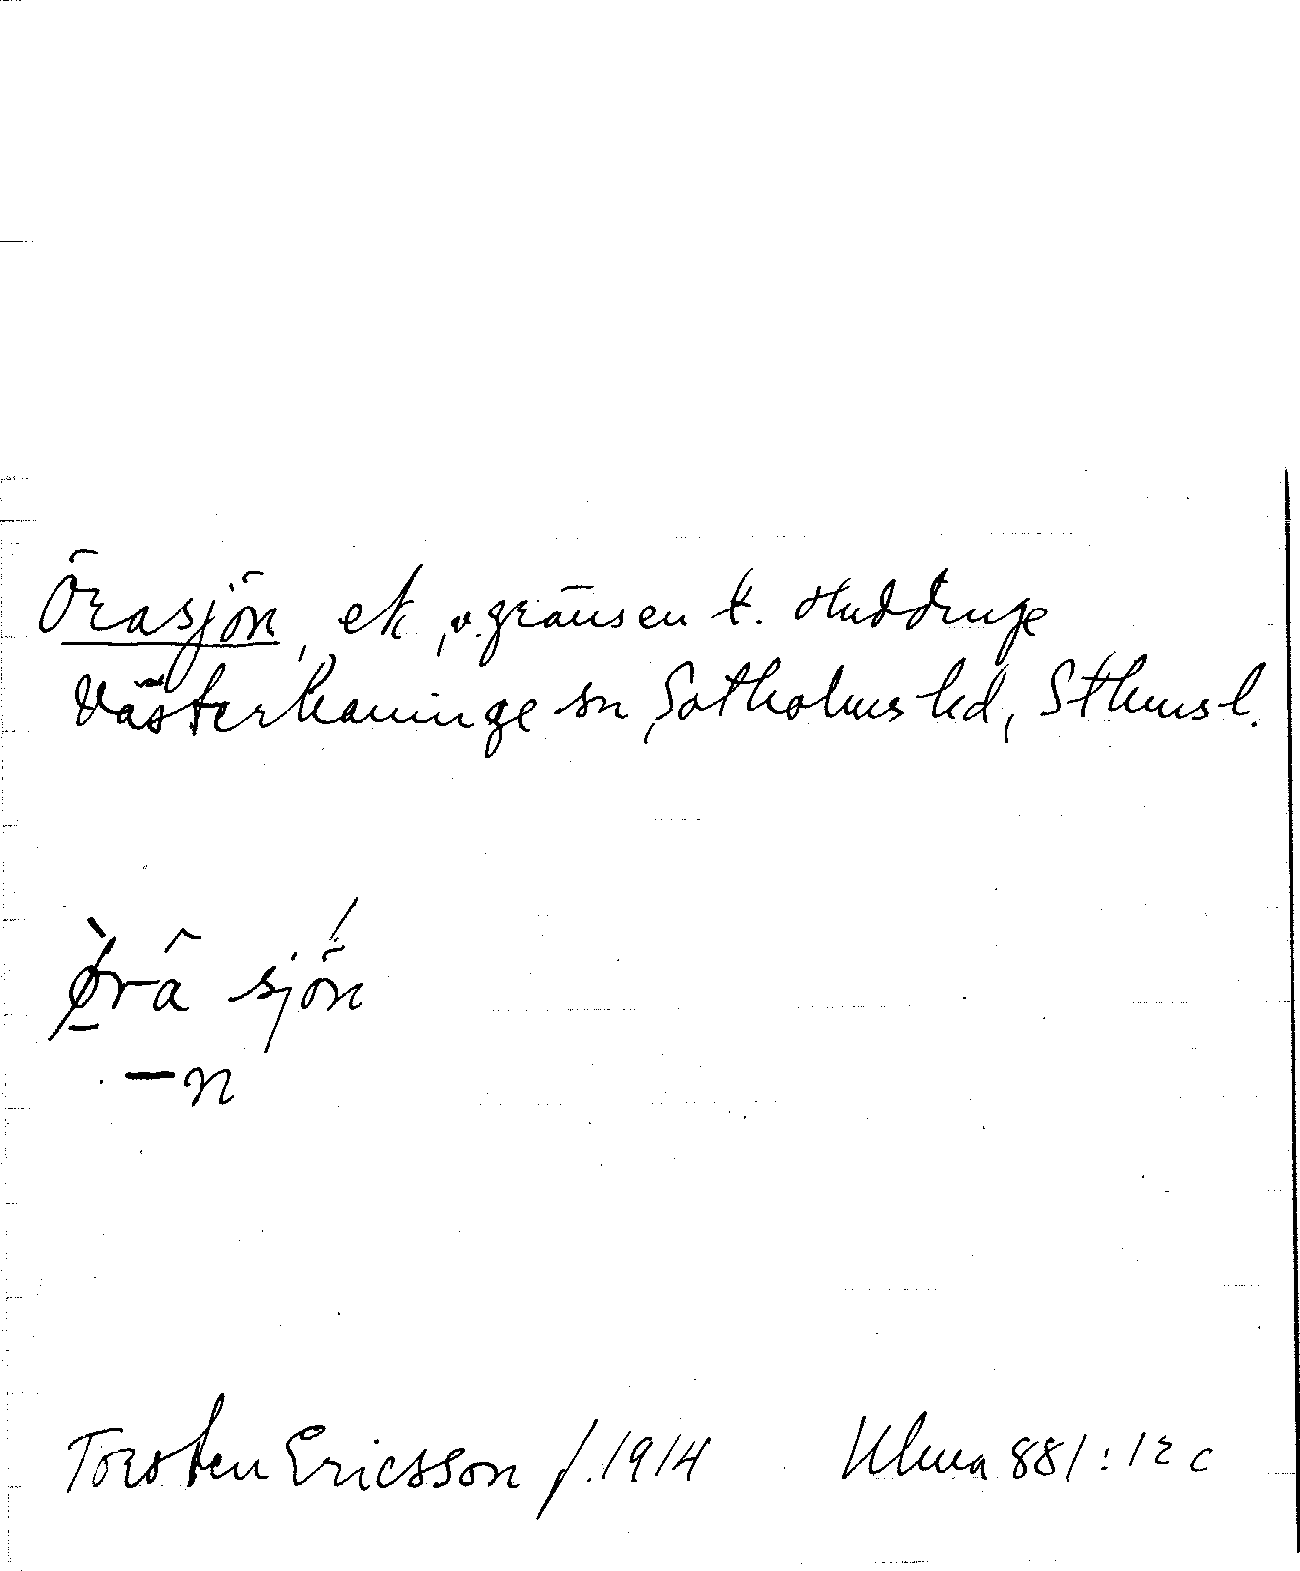 Örasjön, ek, v. gränsen t. Huddinge
Västerhaninge sn, Sotholms hd, Sthms l.
ø̀râ sjö́n
—n
Torsten Ericsson f. 1914 Ulma 881:12 c